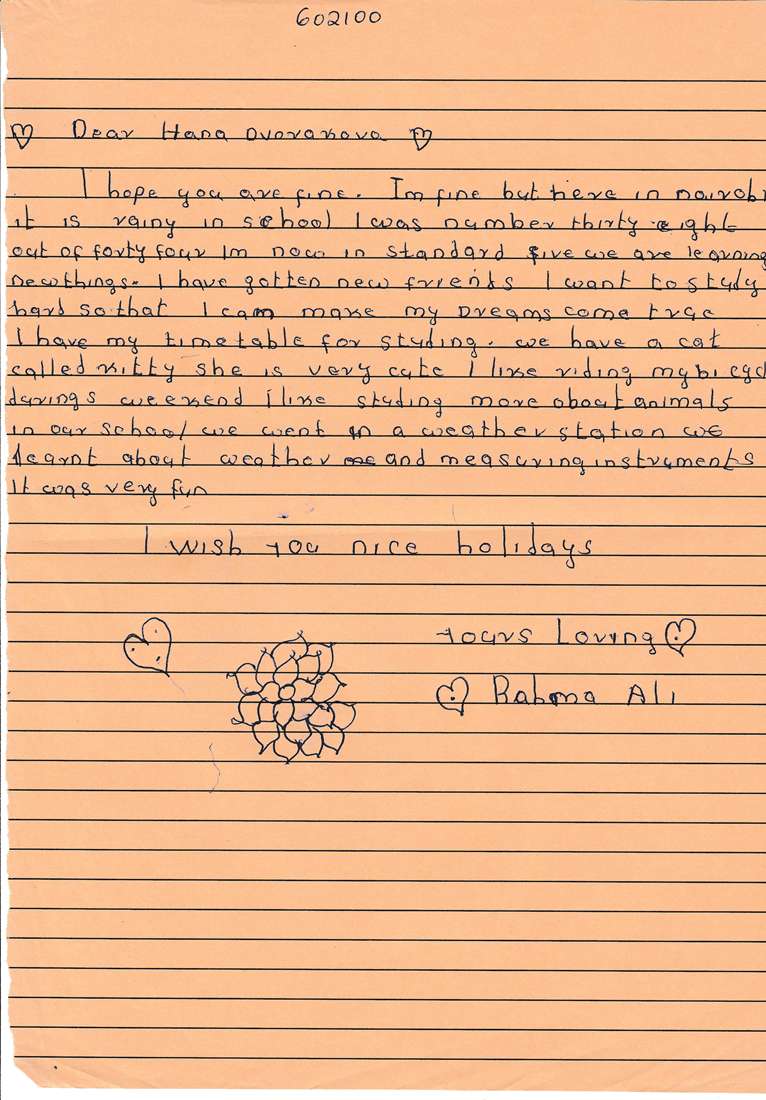 602100
♡ Dear Hana Dvorakova ♡
I hope you are fine. Im fine but here in nairobi
it is rainy in school I was number thirty eight
out of forty four Im now in standard five we are learning
newthings. I have gotten new friends I want to study
hard so that I can make my Dreams come true
I have my timetable for studing. we have a cat
called kitty she is very cute I like riding my bicycl
durings weekend i like studing more about animals
in our school we went in a weather station we
learnt about weather and measuring instruments
It was very fun
I wish you nice holidays
Yours Loving ♡
♡ Rahma Ali